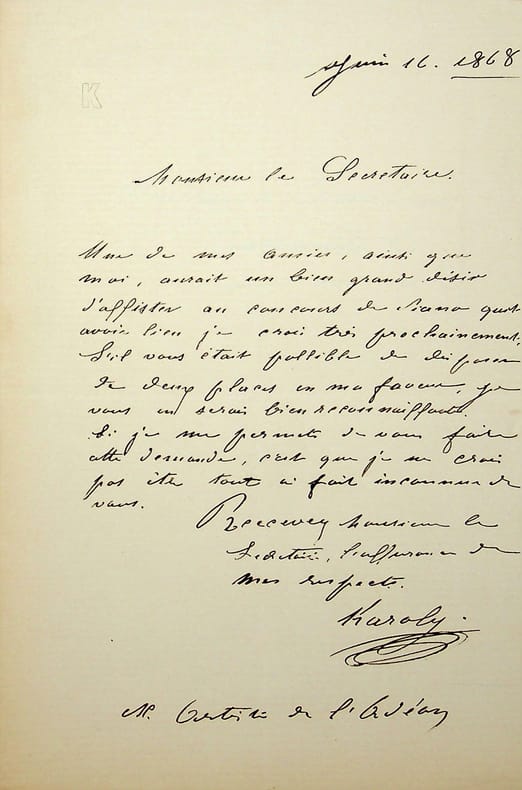 Juin 16. 1868
K
Monsieur le Secretaire.
Une de mes amies, ainsi que
moi, aurait un bien grand désir
d'assister au concours de Piano qui
avoir lieu je crois très prochainement.
S'il vous était possible de disposer
de deux places en ma faveur, je
vous en serais bien reconnaissante.
Si je me permets de vous faire
cette demande, c'est que je ne crois
pas être tout à fait inconnue de
vous.
Recevez Monsieur le
Secretaire, l'assurance de
mes respects.
Karoly.
de l'Odéon